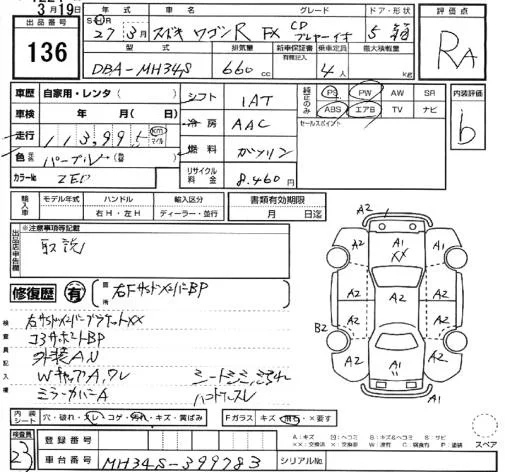 3月19日
出品番号 136
年式 車名 グレード ドア・形状 評価点
27年3月 スズキ ワゴンR FX CDプレーヤーイオ 5 箱 RA
型式 排気量 新車保証書 有無記入 乗車定員 最大積載量
DBA-MH34S 660cc 4人 kg
車歴 自家用・レンタ( )
車検 年 月( 日)
走行 113,99 km マイル
色 パープル
カラーNo ZED
シフト 1AT
冷房 AAC
燃料 ガソリン
リサイクル料金 8,460円
純正のみ PS PW AW SR
ABS エアB TV ナビ
セールスポイント
内装評価 b
輸入車 モデル年式 ハンドル 輸入区分
右H・左H ディーラー・並行
書類有効期限
月 日迄
出品店申告欄 ※注意事項等記載
取説
修復歴 有 箇所 右FサイドメンバーBP
検査員記入欄
右サイドメンバーブラケットXX
コアサポートBP
外装AW
WキャップA,ワレ シートシミ,汚れ
ミラーカバーA ハンドルスレ
A2 A1 XX A2
A2 A2 A2
A2 A2 A2
B2
A2 A1 A2
内装シート 穴・破れ・スレ・コゲ・汚れ・キズ・黄ばみ
Fガラス キズ・飛石・×要す
A:キズ U:ヘコミ B:キズ&ヘコミ S:サビ
XX:交換済 X:要交換 W:波有 C:腐食有 P:塗装
スペア
検査員 23
登録番号
車台番号 MH34S-399783 シリアルNo.